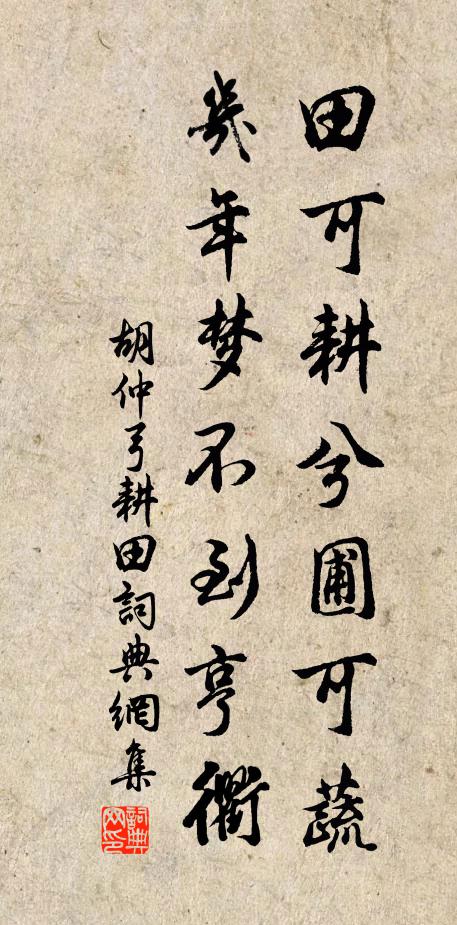 田可耕兮圃可蔬
幾年梦不到亨衢
胡仲弓耕田詞典網集
詞典
网印